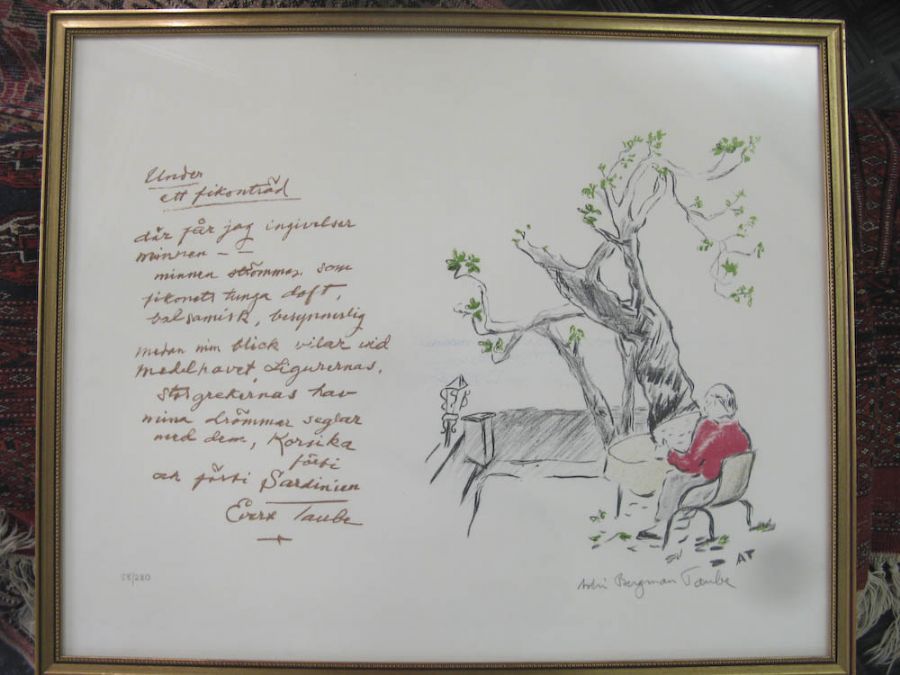 Under
ett fikonträd
där får jag ingivelser
minnen – –
minnen strömmar som
fikonets tunga doft,
balsamisk, besynnerlig
medan min blick vilar vid
Medelhavet, Ligurernas,
Storgrekernas hav
mina drömmar seglar
med dem, Korsika
förbi
och förbi Sardinien
Evert Taube
58/280
AT
Astri Bergman Taube